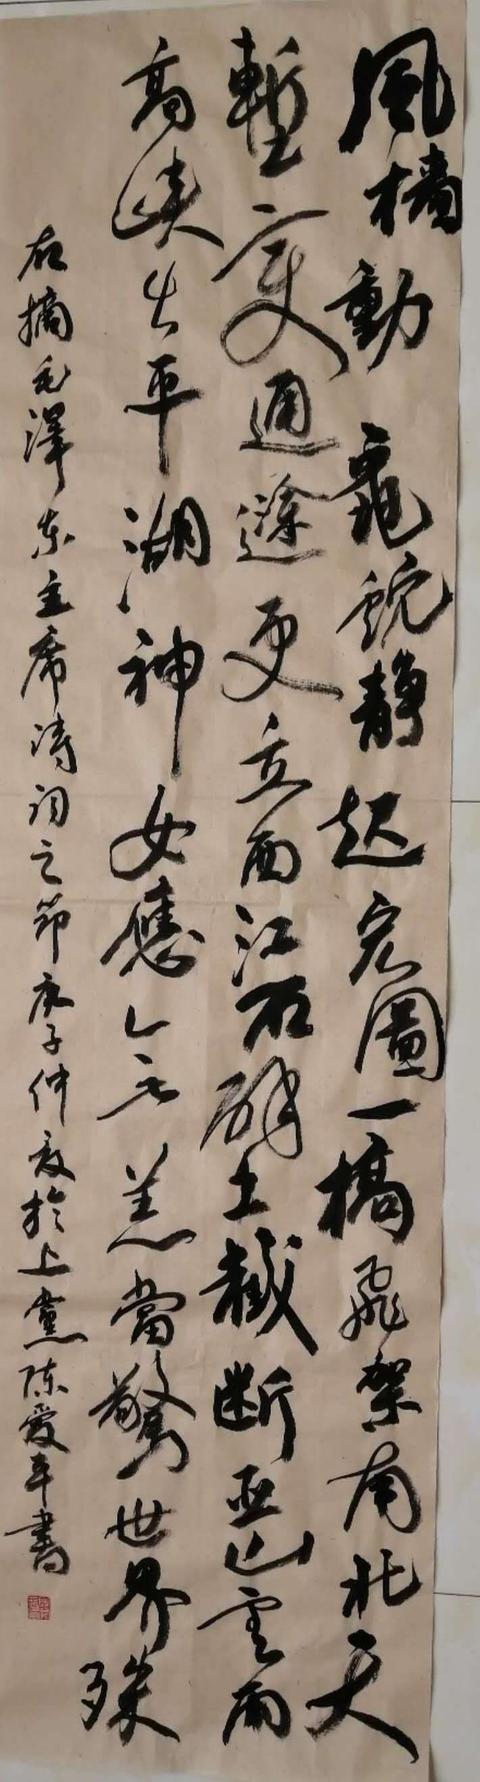 風檣動龜蛇静起宏圖一橋飛架南北天
塹变通途更立西江石壁截断巫山雲雨
高峡出平湖神女應無恙當驚世界殊
右摘毛澤东主席诗词之節庚子仲夏於上黨陈爱平書